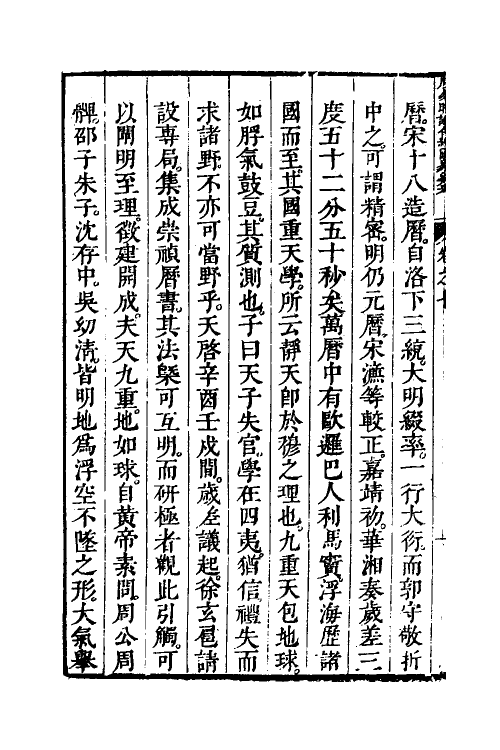 曆。宋十八造曆。自洛下三統。大明綴率。一行大衍。而郭守敬折
中之。可謂精密。明仍元曆。宋濂等較正。嘉靖初。華湘奏歲差三
度五十二分五十秒矣。萬曆中有歐邏巴人利馬竇。浮海歷諸
國而至。其國重天學。所云靜天卽於穆之理也。九重天包地球。
如脬氣鼓豆。其質測也。子曰天子失官。學在四夷。猶信禮失而
求諸野。不亦可當野乎。天啓辛酉壬戌間。歲差議起。徐玄扈請
設專局。集成崇禎曆書。其法槩可互明。而研極者觀此引觸。可
以闡明至理。徵建開成。夫天九重。地如球。自黃帝素問。周公周
髀。邵子朱子。沈存中。吳幼清。皆明地爲浮空不墜之形。大氣舉